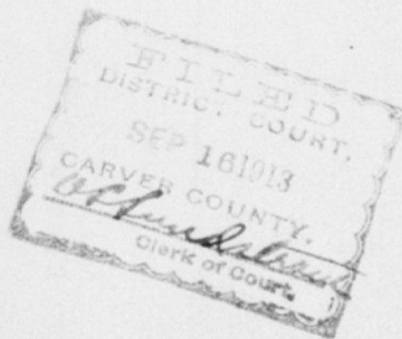 FILED
DISTRICT COURT,
SEP 16 1913
CARVER COUNTY.
Clerk of Court.